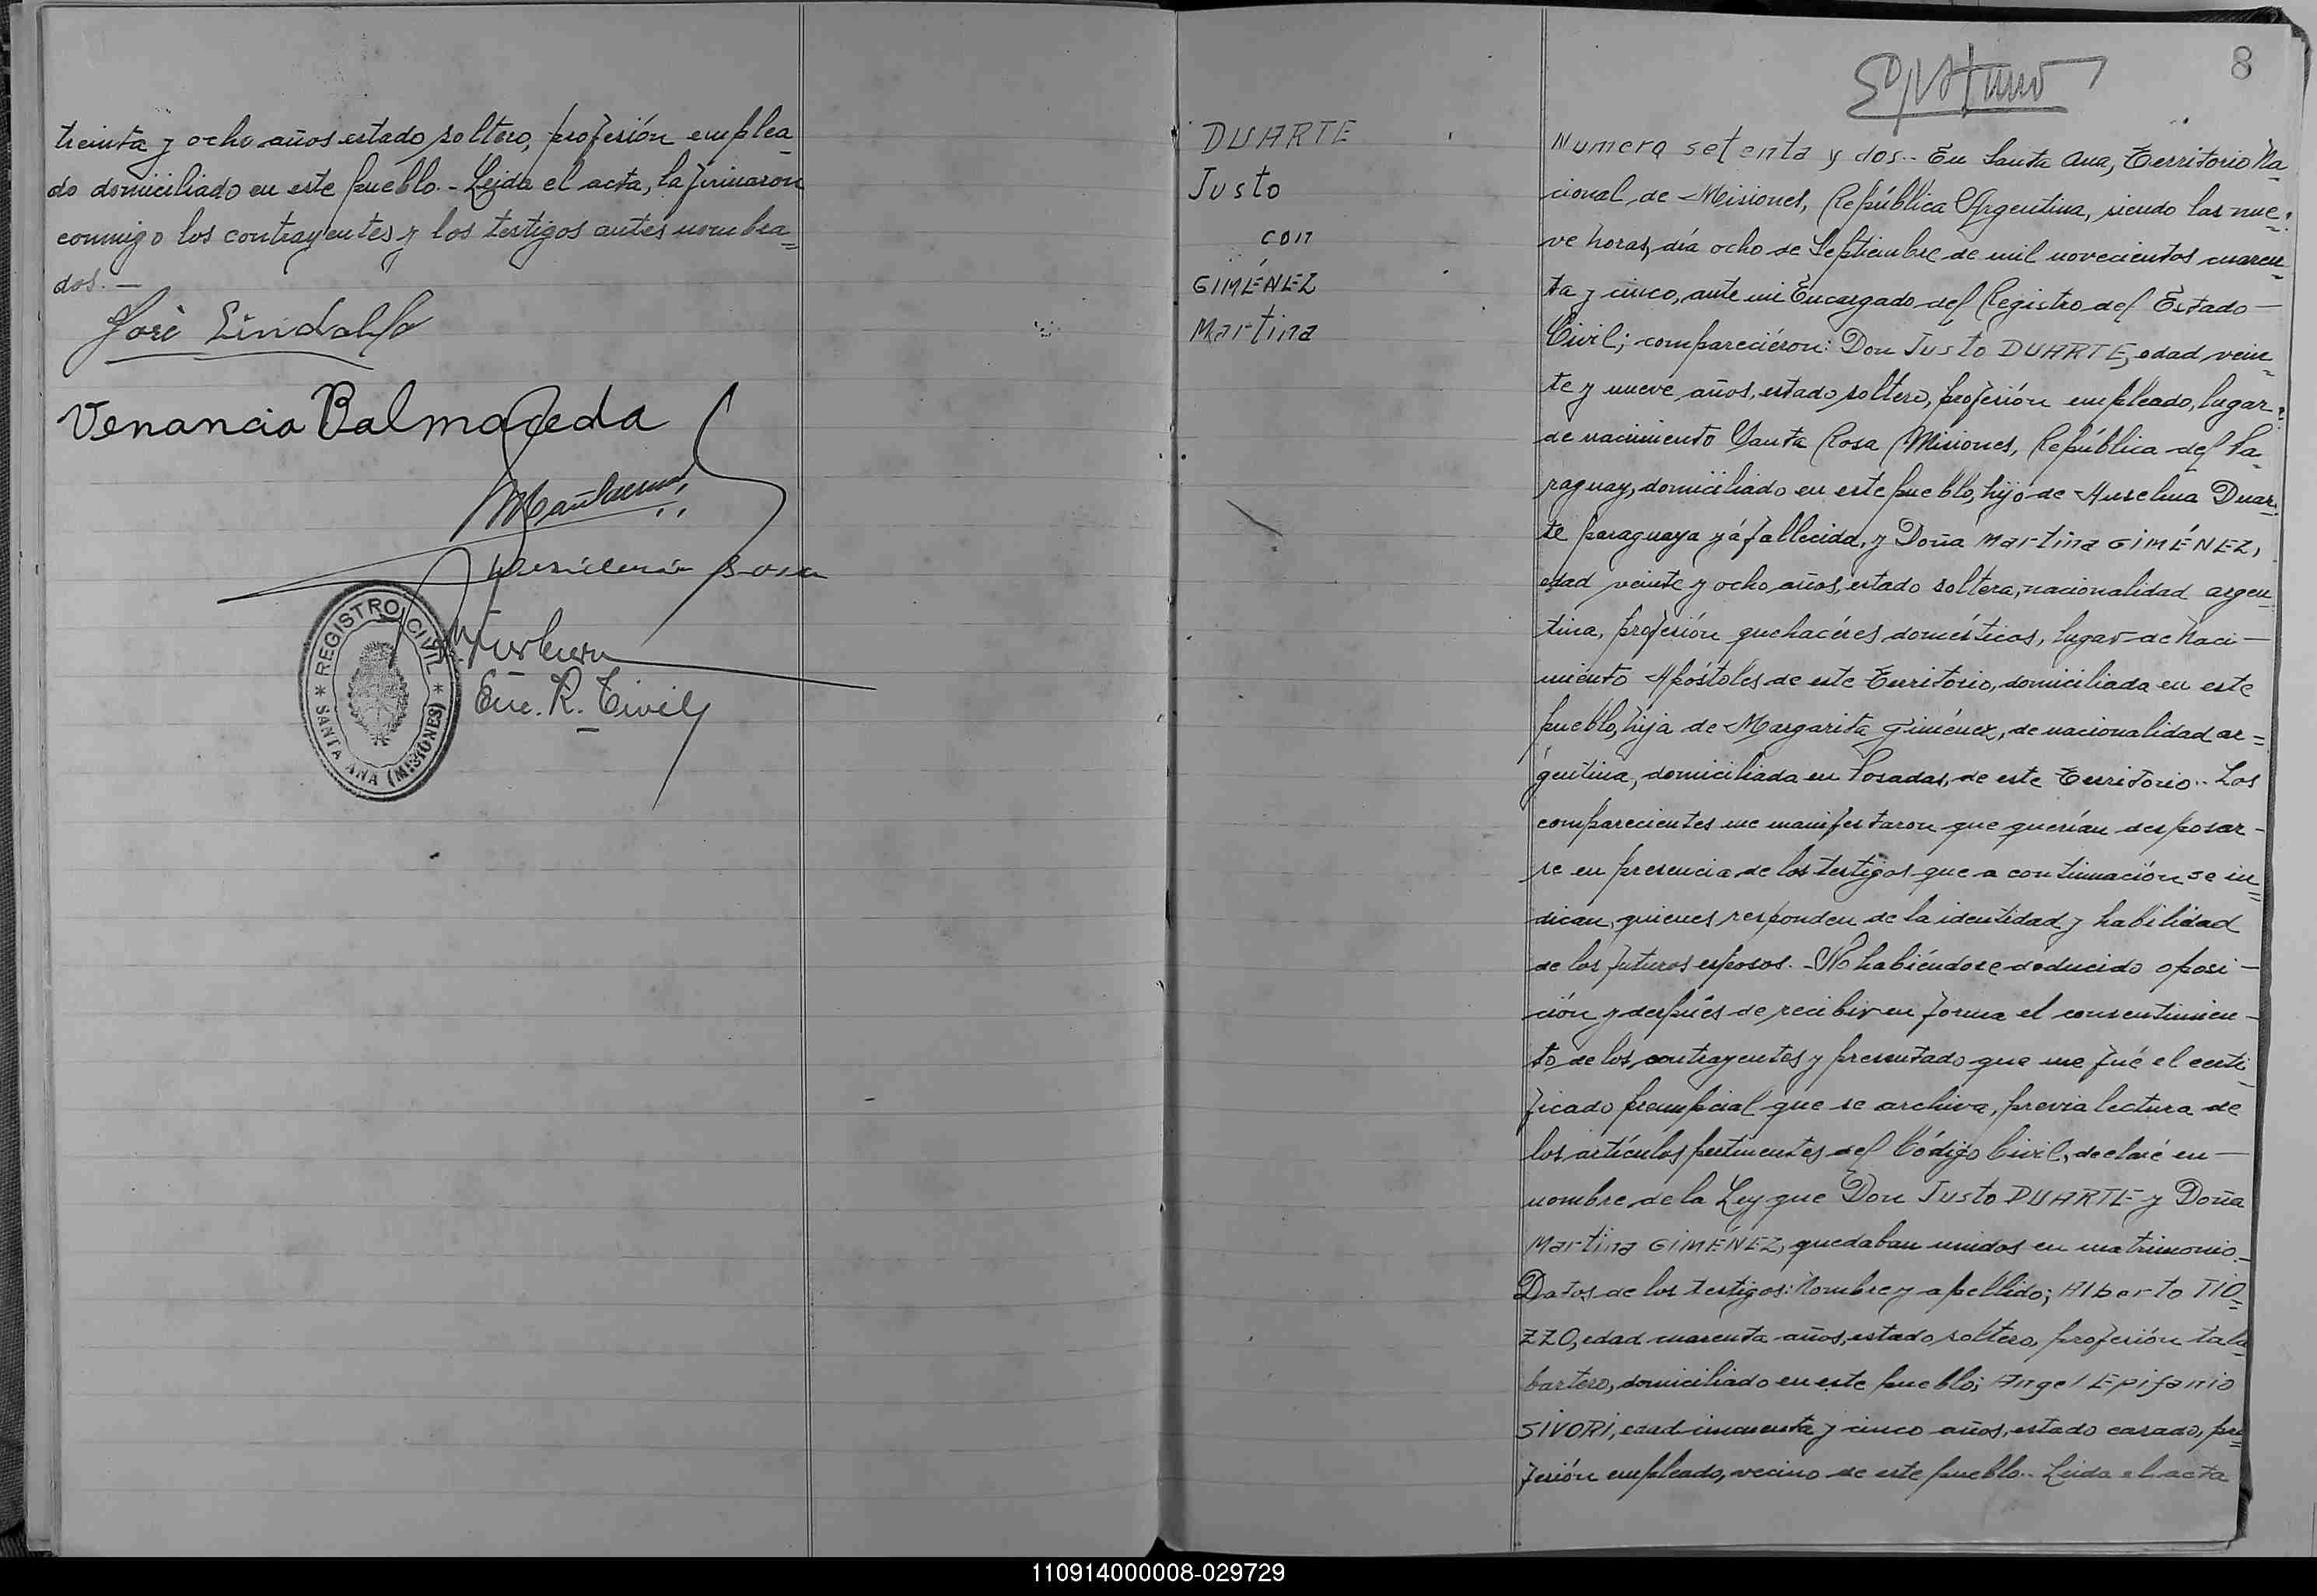 treinta y ocho años estado soltero, profesión emplea-
do domiciliado en este pueblo.- Leida el acta, la firmaron
conmigo los contrayentes y los testigos antes nombra=
dos.-
José Lindolfo
Venancio Balmaceda
Sosa
Enc. R. Civil
* REGISTRO CIVIL *
SANTA ANA (MISIONES)
8
DUARTE
Justo
con
GIMÉNEZ
Martina
Numero setenta y dos.- En Santa Ana, Territorio Na-
cional de Misiones, República Argentina, siendo las nue=
ve horas, día ocho de Septiembre de mil novecientos cuaren=
ta y cinco, ante mi Encargado del Registro del Estado-
Civil; compareciéron: Don Justo DUARTE, edad vein=
te y nueve años, estado soltero, profesión empleado, lugar=
de nacimiento Santa Rosa Misiones, República del Pa-
raguay, domiciliado en este pueblo, hijo de Anselma Duar=
te paraguaya yá fallecida, y Doña Martina GIMÉNEZ,
edad veinte y ocho años, estado soltera, nacionalidad argen-
tina, profesión quehacéres domésticos, lugar de Naci-
miento Apóstoles de este Territorio, domiciliada en este
pueblo, hija de Margarita Giménez, de nacionalidad ar=
gentina, domiciliada en Posadas, de este Territorio.- Los
comparecientes me manifestaron que querían desposar-
se en presencia de los testigos que a continuación se in=
dican, quienes responden de la identidad y habilidad
de los futuros esposos.- No habiéndose deducido oposi-
ción y después de recibir en forma el consentimien-
to de los contrayentes y presentado que me fué el certi-
ficado prenupcial que se archiva, previa lectura de
los artículos pertinentes del Código Civil, declaré en-
nombre de la Ley que Don Justo DUARTE y Doña
Martina GIMÉNEZ, quedaban unidos en matrimonio.-
Datos de los testigos: Nombre y apellido; Alberto TIO=
ZZO, edad cuarenta años, estado soltero, profesión tala=
bartero, domiciliado en este pueblo; Angel Epifanio
SIVORI, edad cincuenta y cinco años, estado casado, pro=
fesión empleado, vecino de este pueblo.- Leida el acta
110914000008-029729